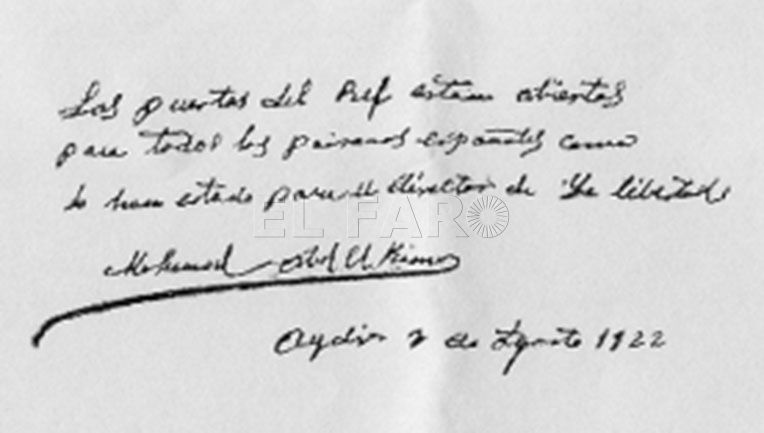 Las puertas del Rif están abiertas
para todos los paisanos españoles como
lo han estado para el director de "La libertad"
EL FARO
Mohamed Abd el Krim
Aydir 2 de Agosto 1922